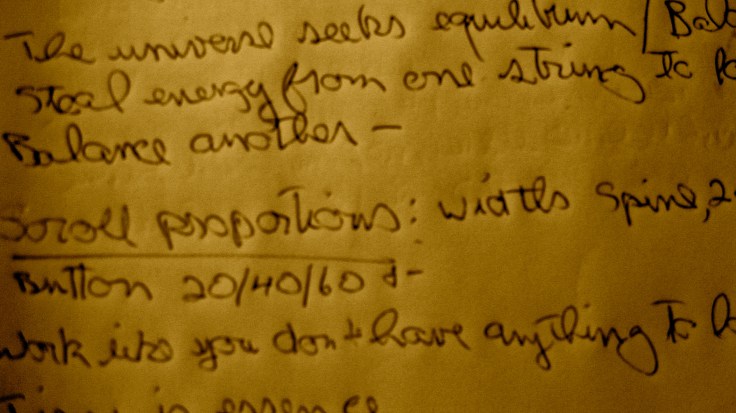 The universe seeks equilibrium/Bal
Steal energy from one string to
Balance another –
Scroll proportions: widths spine, 2
Button 20/40/60
Work like you don't have anything to
Time is essence